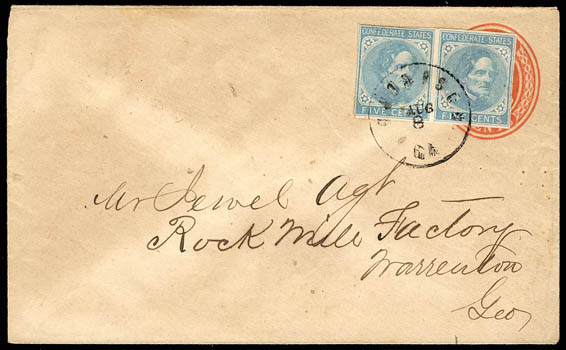 CONFEDERATE STATES CONFEDERATE STATES
AUG
8
FIVE CENTS FIVE CENTS
Mr Jewel Agt
Rock Mill Factory
Warrenton
Geo